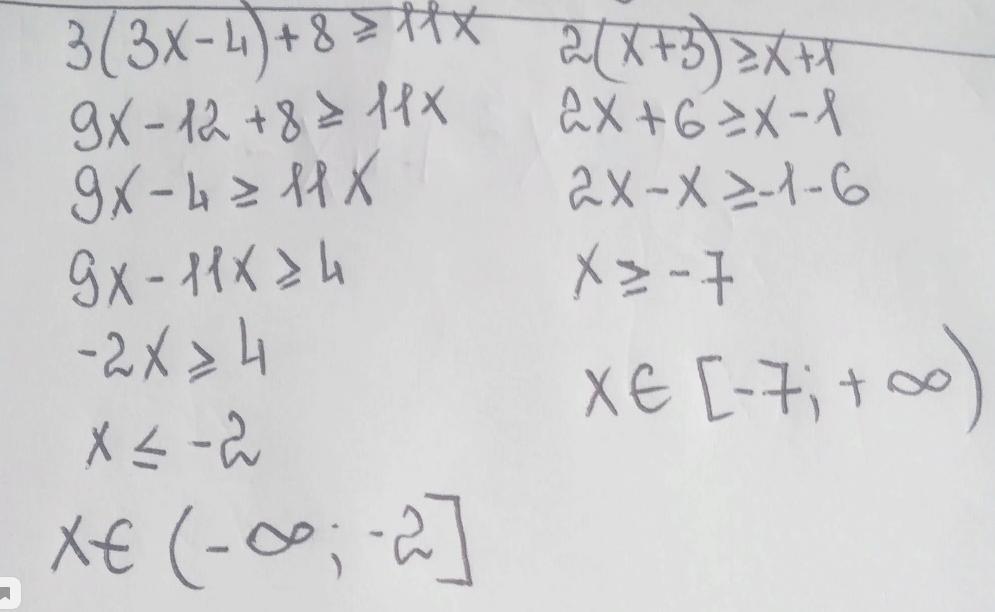 3(3x-4)+8≥11x
9x-12+8≥11x
9x-4≥11x
9x-11x≥4
-2x≥4
x≤-2
x∈(-∞;-2]
2(x+3)≥x+1
2x+6≥x-1
2x-x≥-1-6
x≥-7
x∈[-7;+∞)